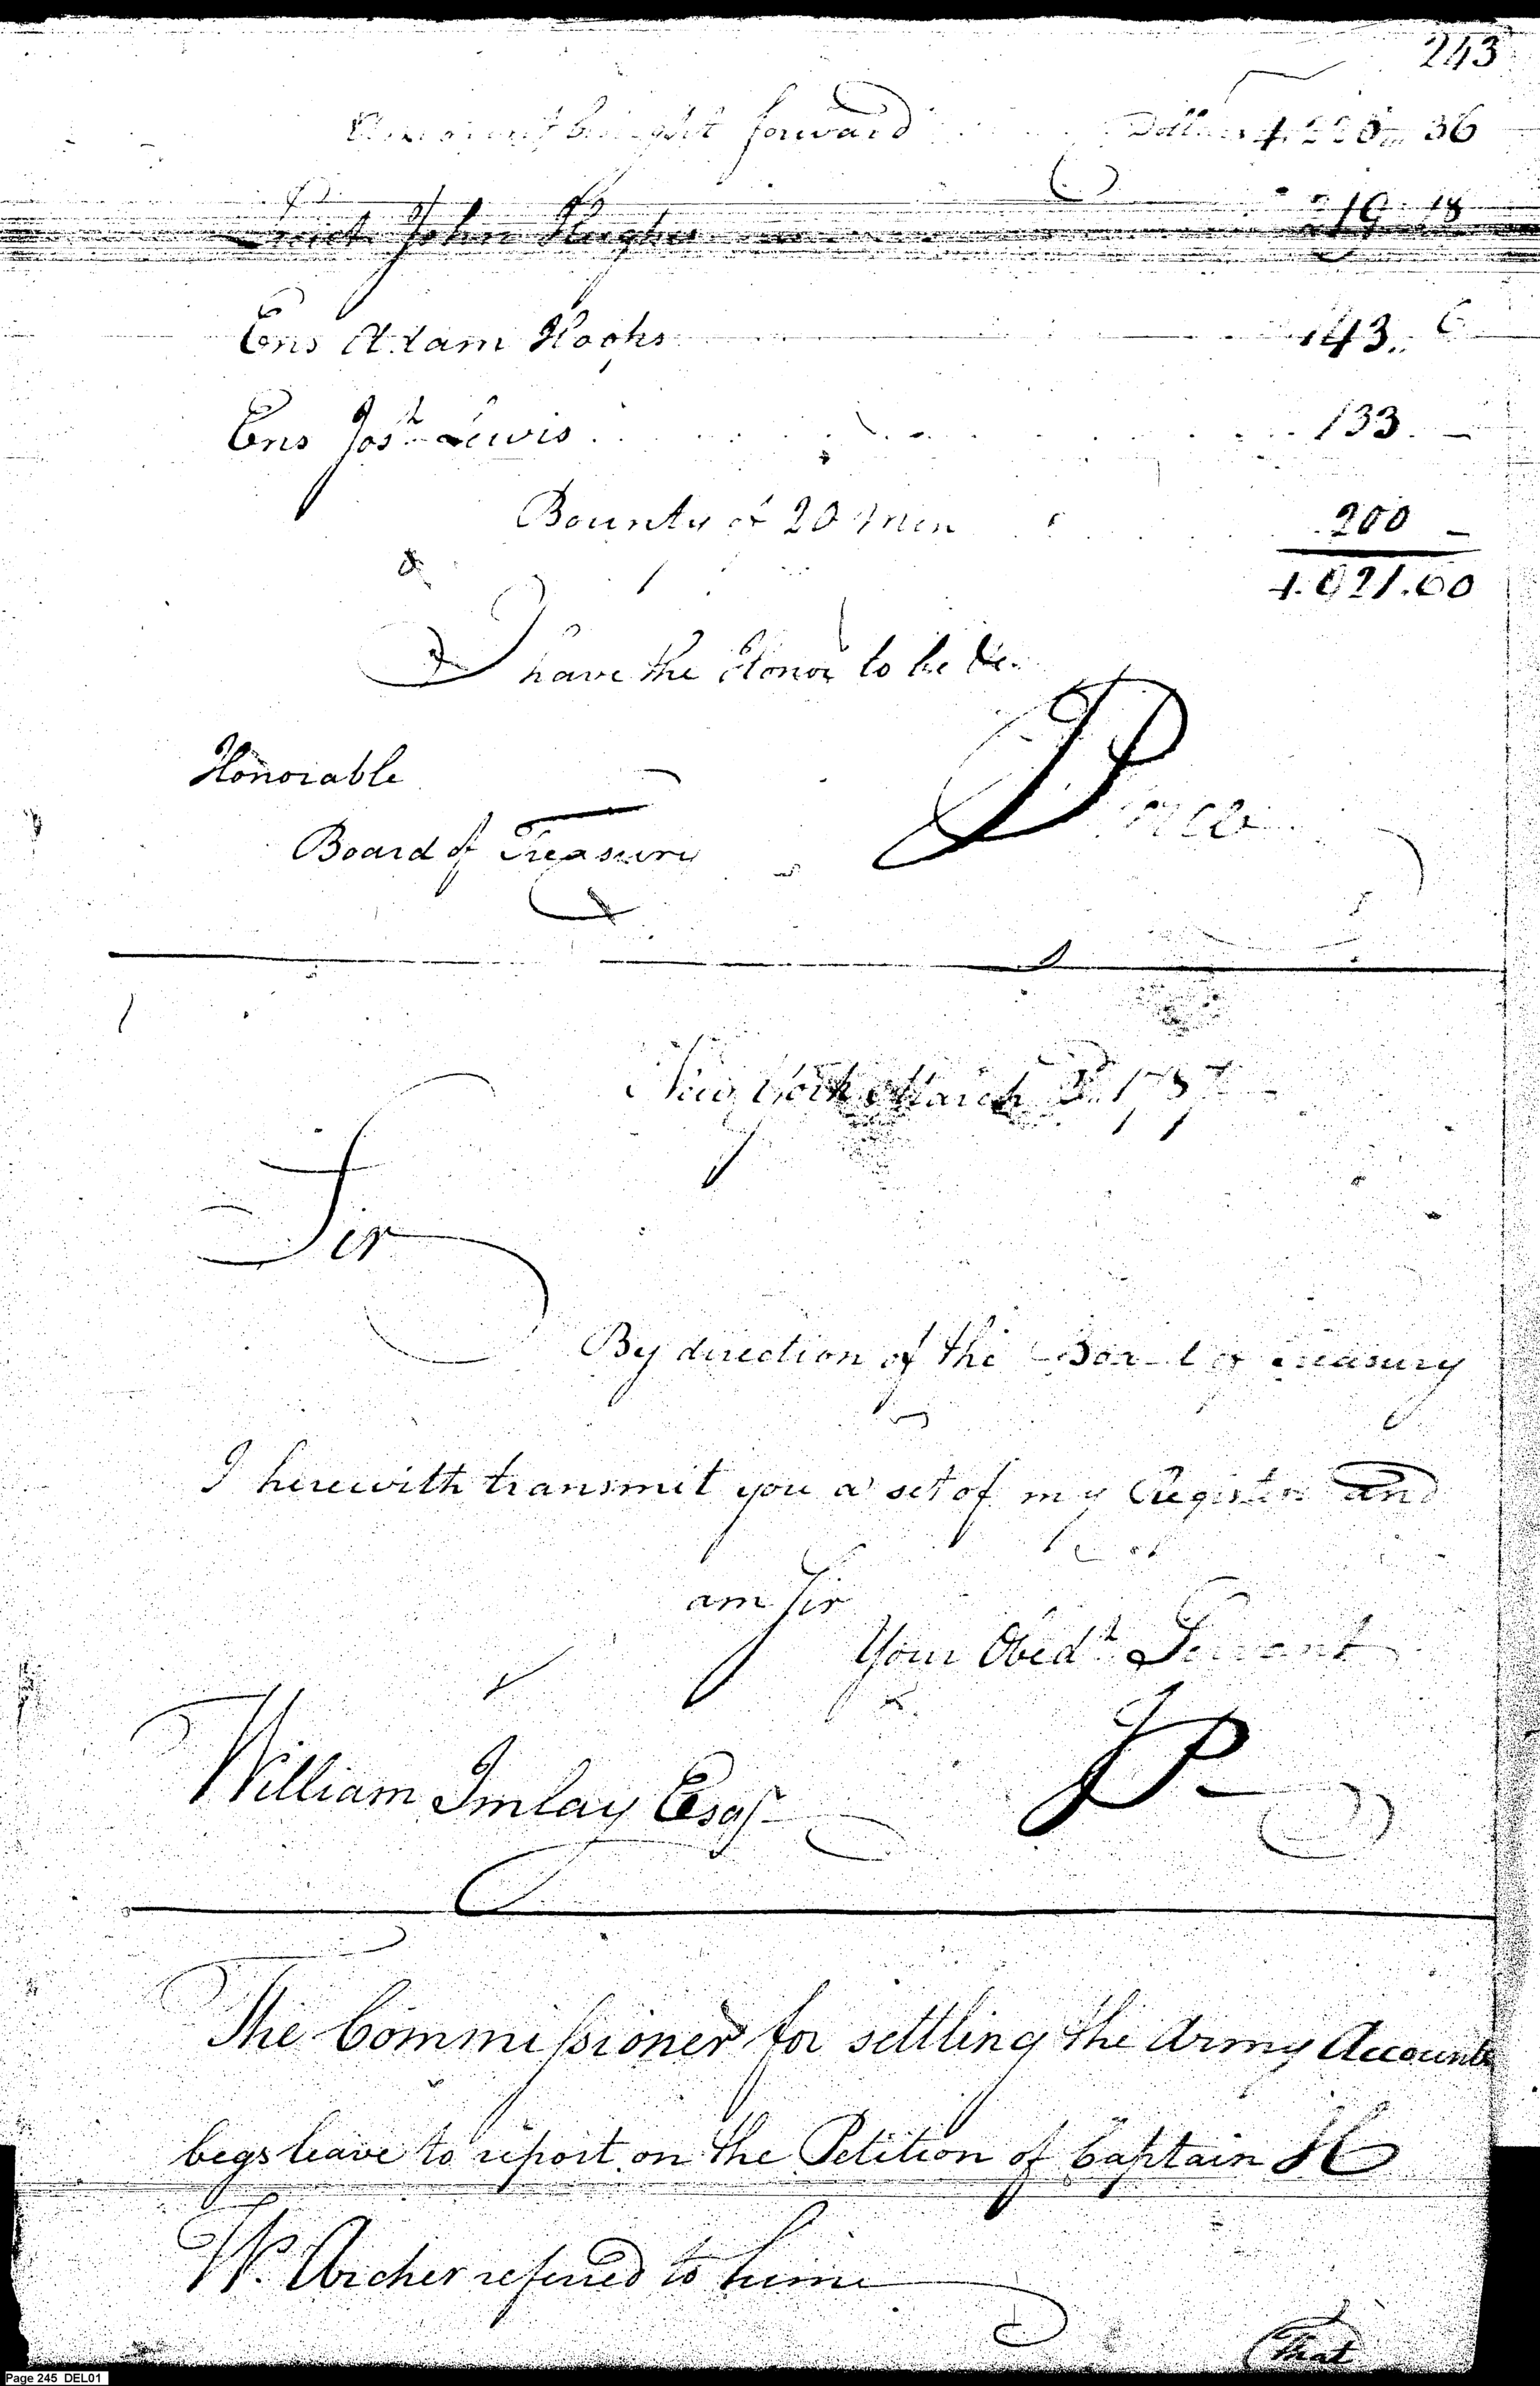 243
Amount brought forward Dollars 4.225 36
Lieut John Hughes 219 18
Ens Adam Hoops 143 6
Ens Josh Lewis 133 —
Bounty of 20 Men 200 —
4.921.60
I have the Honor to be &c.
Honorable
Board of Treasury
New York March 3d 1787
Sir
By direction of the Board of Treasury
I herewith transmit you a set of my Registers and
am Sir
Your Obedt Servant
William Imlay Esqr
JP
The Commissioner for settling the Army Accounts
begs leave to report on the Petition of Captain H
W. Archer referred to him
That
Page 245 DEL01